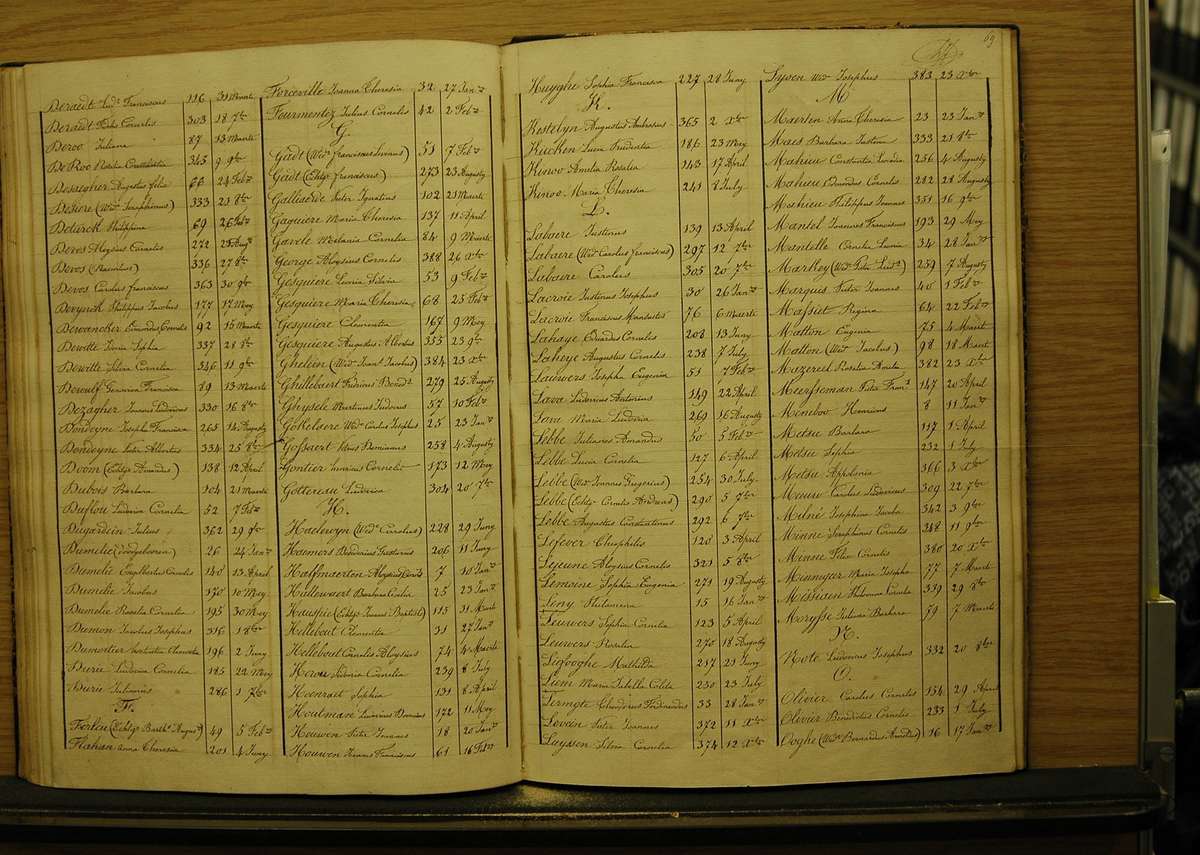 Beraedt Lud.s Franciscus 116 31 Maerte
Beraedt Felix Cornelis 303 18 7bre
Deroo Juliana 87 13 Maerte
De Roo Rosalia Constantia 345 9 9bre
Desaegher Augustus felix 66 24 Febr
Desiere (Wed.e Josephinus) 333 21 8bre
Deturck Philippina 69 26 Febr
Devos Aloysius Cornelis 272 23 Aug
Devos (Maevilius) 336 27 8bre
Devos Carolus franciscus 363 30 9bre
Devynck Philippus Jacobus 177 17 Mey
Dewancker Edmondus Cornelis 92 15 Maerte
Dewitte Lucia Sophia 337 28 8bre
Dewitte Silvia Cornelia 346 11 9bre
Dewulf Genoveva Francisca 89 13 Maerte
Dezagher Joannes Ludovicus 330 16 8bre
Dondeyne Josepha Francisca 265 14 Augusty
Dondeyne Petrus Albertus 334 25 8bre
Doom (Echtg.e Amandus) 138 12 April
Dubois Barbara 104 21 Maerte
Duflou Ludovica Cornelia 52 7 Febr
Dugardein Julius 362 29 9bre
Dumelie (doodgeboren) 26 24 Jan
Dumelie Engelbertus Cornelis 140 13 April
Dumelie Jacobus 170 10 Mey
Dumelie Rosalia Cornelia 195 30 Mey
Dumon Jacobus Josephus 316 1 8bre
Dumortier Clementia 196 2 Juny
Durie Ludovica Cornelia 185 22 Mey
Durie Julianus 286 1 7bre
F.
Ferlen (Echtg.e Barth.s August) 49 5 Feb
Flahan Anna Theresia 201 4 Juny
Forceville Joanna Theresia 32 27 Jan
Fourmentez Julius Cornelis 42 2 Feb
G.
Gadt (Wed.e Franciscus Livinus) 51 7 Feb
Gadt (Echtg.e franciscus) 273 23 Augusty
Galliaerde Petrus Ignatius 102 21 Maerte
Gaquiere Maria Theresia 137 11 April
Gavele Melania Cornelia 84 9 Maerte
George Aloysius Cornelis 388 26 Xbre
Gesquiere Lucia Silvia 53 9 Feb
Gesquiere Maria Theresia 68 25 Feb
Gesquiere Clementia 167 9 Mey
Gesquiere Augustus Albertus 355 23 9bre
Ghelein (Wed.e Joan.s Jacobus) 384 23 Xbre
Ghillebaert Fidelius Bened.s 279 25 Augusty
Ghysels Martinus Isidorus 57 10 Feb
Gokelaere Wed.e Carolus Josephus 25 23 Jan
Gossaert Petrus Dominicus 258 4 Augusty
Gontier Cornelis 173 12 Mey
Gottereau Ludovica 304 20 7bre
H.
Haelewyn (Wed.e Carolus) 228 29 Juny
Haemers Desiderius Justinus 206 11 Juny
Haffmaerten Aloysius Corn.s 7 10 Jan
Hallewaert Barbara Cecilia 25 23 Jan
Hauspie (Echtg.e Joannes Baptiste) 115 31 Maerte
Hellebout Clementia 31 27 Jan
Hellebout Cornelis Aloysius 74 4 Maerte
Herou Ludovica Cornelia 239 8 July
Hoenraet Sophia 131 8 April
Houtmave Ludovicus Dominicus 172 11 Mey
Houwen Petrus Joannes 18 20 Jan
Houwen Joannes Franciscus 61 16 Feb
69
Huyghe Sophia Francisca 227 28 Juny
K.
Kestelyn Augustus Ambrosius 365 2 Xbre
Kieken Lucia Prudentia 186 23 Mey
Kieroo Amelia Rosalia 143 17 April
Kieroo Maria Theresia 241 8 July
L.
Labaere Justinus 139 13 April
Labaere (Wed.e Carolus franciscus) 297 12 7bre
Labaere Carolus 305 20 7bre
Lacroie Justinus Josephus 30 26 Jan
Lacroie Franciscus Mansuetus 76 6 Maerte
Lahaye Eduardus Cornelis 208 13 Juny
Laheye Augustus Cornelis 238 7 July
Lauwers Josepha Eugenia 51 7 Feb
Lava Ludovicus Antonius 149 22 April
Lava Maria Ludovica 269 16 Augusty
Lebbe Julianus Amandus 50 5 Feb
Lebbe Lucia Cornelia 127 6 April
Lebbe (Wed.e Joannes Gregorius) 254 30 July
Lebbe (Echtg.e Cornelis Andreas) 290 5 7bre
Lebbe Augustus Constantinus 292 6 7bre
Lefever Theophilis 120 3 April
Lejeune Aloysius Cornelis 321 5 8bre
Lemaine Sophia Eugenia 271 19 Augusty
Leny Philomena 15 16 Jan
Leuwers Sophia Cornelia 123 5 April
Leuwers Rosalia 270 18 Augusty
Liefooghe Mathilda 217 21 Juny
Liem Maria Isabella Colita 250 23 July
Lermyte Claudorus Ferdinandus 33 28 Jan
Lovein Petrus Joannes 372 11 Xbre
Luyssen Silvia Cornelia 374 12 Xbre
Lysen Wed.e Josephus 383 23 Xbre
M
Maerten Anna Theresia 23 23 Jan
Maes Barbara Justina 333 21 8bre
Mahieu Constantia Lucidia 256 4 Augusty
Mahieu Edmundus Cornelis 282 28 Augusty
Mahieu Philippus Joannes 351 16 9bre
Mantel Joannes Franciscus 193 29 Mey
Mantelle Cornelia Lucia 34 28 Jan
Markey (Wed.e Petrus Leud.s) 259 7 Augusty
Marquis Petrus Joannes 40 1 Feb
Massiet Regina 64 22 Feb
Matton Eugenia 75 4 Maert
Matton (Wed.e Jacobus) 98 18 Maert
Mazereel Rosalia Amelia 382 23 Xbre
Meersseman Petrus Fran.s 147 20 April
Meneboo Henricus 8 11 Jan
Metsu Barbara 117 1 April
Metsu Sophia 232 1 July
Metsu Appolonia 366 3 Xbre
Meuro Carolus Ludovicus 309 22 7bre
Melné Josephina Jacoba 342 3 9bre
Minne Seraphinus Cornelis 348 11 9bre
Minne Felix Cornelis 380 20 Xbre
Minnyter Maria Josepha 77 7 Maert
Missiaen Philomena Lucida 339 29 8bre
Moryse Juliana Barbara 59 7 Maerte
N.
Note Ludovicus Josephus 332 20 8bre
O.
Olivier Carolus Cornelis 154 29 April
Olivier Benedictus Cornelis 233 1 July
Ooghe (Wed.e Bernardus Amatus) 16 17 Jan